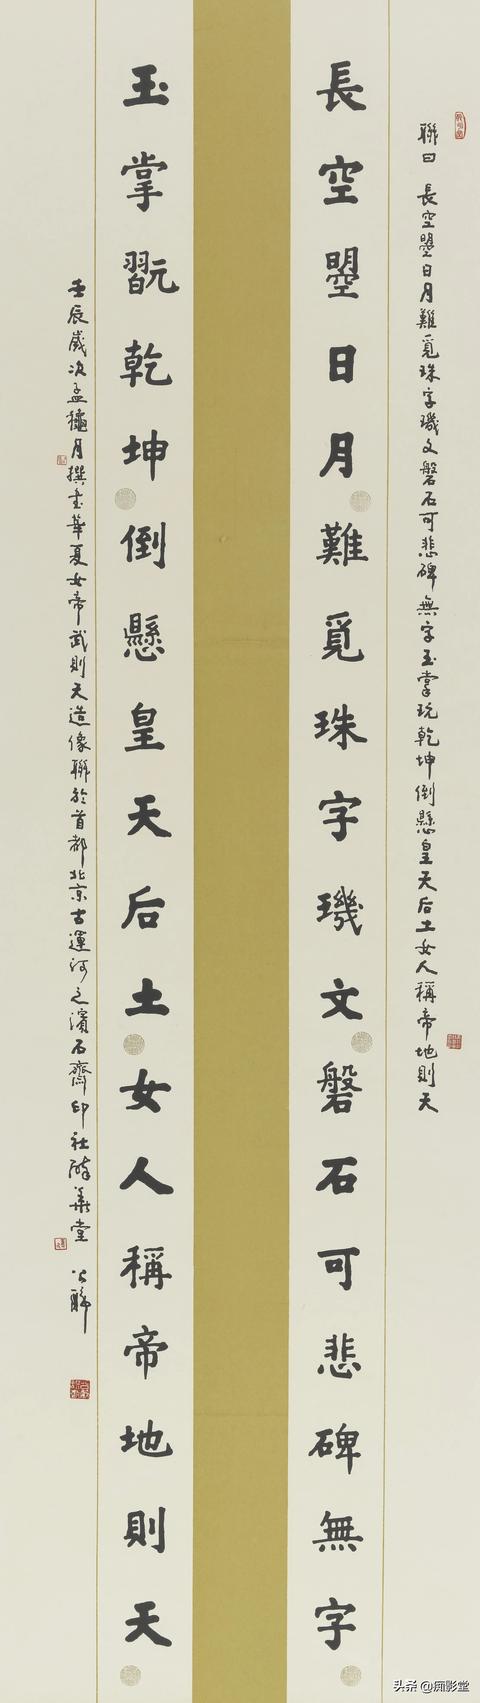 聯曰 長空曌日月難覓珠字璣文磐石可悲碑無字玉掌玩乾坤倒懸皇天后土女人稱帝地則天
長空曌日月難覓珠字璣文磐石可悲碑無字
玉掌翫乾坤倒懸皇天后土女人稱帝地則天
壬辰歲次孟穐月撰書華夏女帝武則天造像聯於首都北京古運河之濱石齋印社華堂
头条 @痴影堂